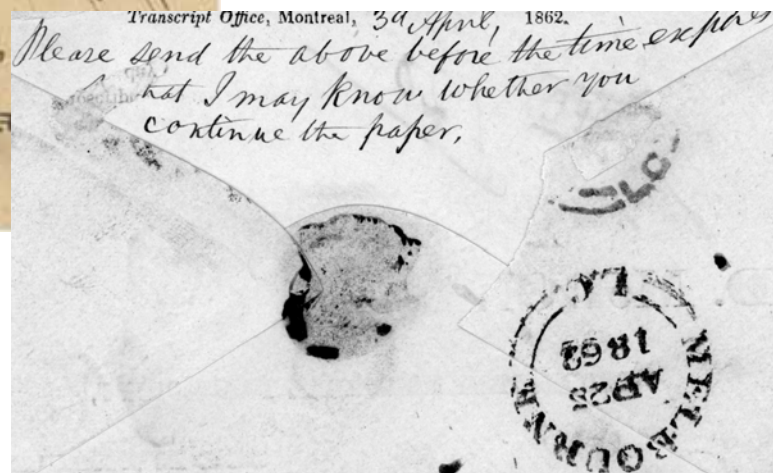 Transcript Office, Montreal, 3d April, 1862.
Please send the above before the time expires
that I may know whether you
continue the paper.
LC
MELBOURNE LC
AP 25
1862